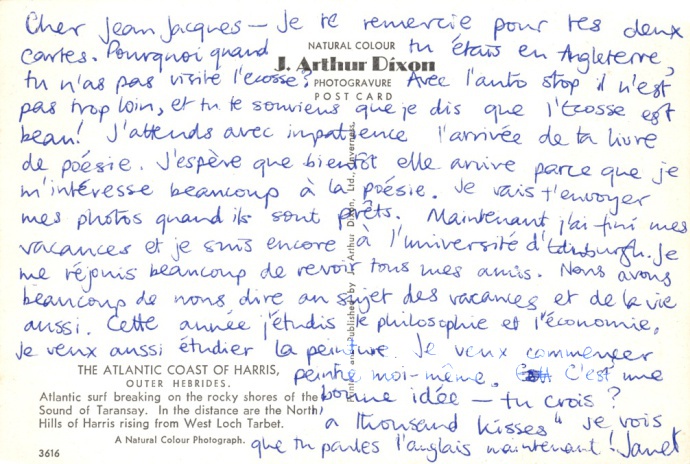 Cher Jean Jacques – Je te remercie pour tes deux
cartes. Pourquoi quand tu étais en Angleterre,
NATURAL COLOUR
J. Arthur Dixon
PHOTOGRAVURE
POST CARD
tu n'as pas visité l'ecosse? Avec l'auto stop il n'est
pas trop loin, et tu te souviens que je dis que l'Ecosse est
beau! J'attends avec impatience l'arrivée de ta livre
de poésie. J'espère que bientôt elle arrive parce que je
m'intéresse beaucoup à la poésie. Je vais t'envoyer
mes photos quand ils sont prêts. Maintenant j'ai fini mes
vacances et je suis encore à l'université d'Edinburgh. Je
me réjouis beaucoup de revoir tous mes amis. Nous avons
beaucoup de nous dire au sujet des vacances et de la vie
aussi. Cette année j'étudis le philosophie et l'économie.
Je veux aussi étudier la peinture. Je veux commencer
peintre moi-même. C'est une
bonne idée – tu crois?
"a thousand kisses" je vois
que tu parles l'anglais maintenant! Janet
Published by J. Arthur Dixon, Ltd., Inverness.
THE ATLANTIC COAST OF HARRIS,
OUTER HEBRIDES.
Atlantic surf breaking on the rocky shores of the
Sound of Taransay. In the distance are the North
Hills of Harris rising from West Loch Tarbet.
A Natural Colour Photograph.
3616